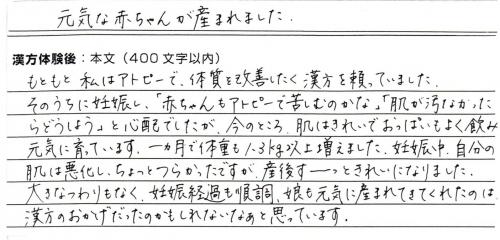 元気な赤ちゃんが産まれました.
漢方体験後：本文（400文字以内）
もともと私はアトピーで、体質を改善したく漢方を頼っていました。
そのうちに妊娠し、「赤ちゃんもアトピーで苦しむのかな」「肌が汚なかった
らどうしよう」と心配でしたが、今のところ、肌はきれいでおっぱいもよく飲み
元気に育っています。一カ月で体重も1.3kg以上増えました。妊娠中、自分の
肌は悪化し、ちょっとつらかったですが、産後すーっときれいになりました。
大きなつわりもなく、妊娠経過も順調、娘も元気に産まれてきてくれたのは、
漢方のおかげだったのかもしれないなぁと思っています。